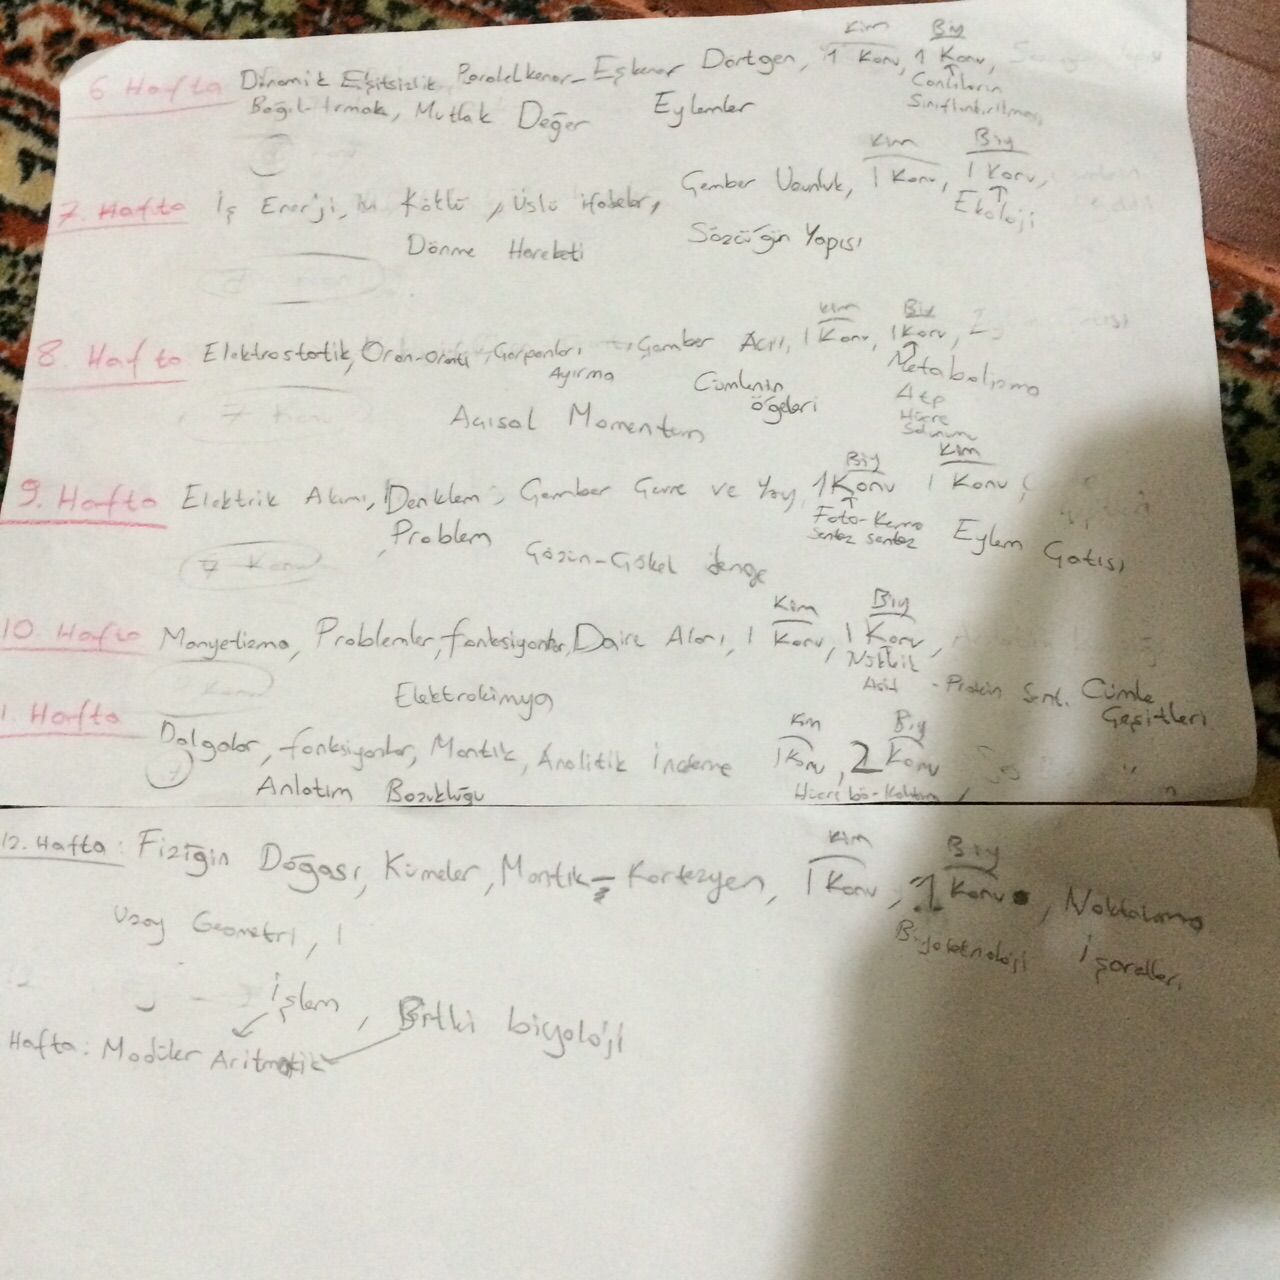 Kim Biy
6 Hafta Dinamik Eşitsizlik, Paralelkenar - Eşkenar Dörtgen, 1 Konu, 1 Konu,
Canlıların
Bağıl-Irmak, Mutlak Değer Eylemler Sınıflandırılması
Kim Biy
7. Hafta İş Enerji, Köklü, Üslü ifadeler, Çember Uzunluk, 1 Konu, 1 Konu,
Ekoloji
Dönme Hareketi Sözcüğün Yapısı
Kim Biy
8. Hafta Elektrostatik, Oran-Orantı, Çarpanları Çember Açı, 1 Konu, 1 Konu,
Ayırma Cümlenin Metabolizma
7 Konu öğeleri Atp
Açısal Momentum Hücre
Solunum
Biy Kim
9. Hafta Elektrik Akımı, Denklem, Çember Çevre ve Yay, 1 Konu 1 Konu,
Problem Foto-Kemo Eylem Çatısı
sentez sentez
7 Konu Çözün-Çökel denge
Kim Biy
10. Hafta Manyetizma, Problemler, fonksiyonlar, Daire Alanı, 1 Konu, 1 Konu,
Konu Nükleik
Elektrokimya Asit - Protein Sent. Cümle
Çeşitleri
Kim Biy
1. Hafta Dalgalar, fonksiyonlar, Mantık, Analitik İnceleme 1 Konu, 2 Konu
Anlatım Bozukluğu Hücre bö-Kalıtım,
Kim Biy
12. Hafta: Fiziğin Doğası, Kümeler, Mantık - Kartezyen, 1 Konu, 1 Konu, Noktalama
Uzay Geometri, 1 Biyoteknoloji İşaretleri
İşlem, Bitki biyoloji
Hafta: Modüler Aritmetik